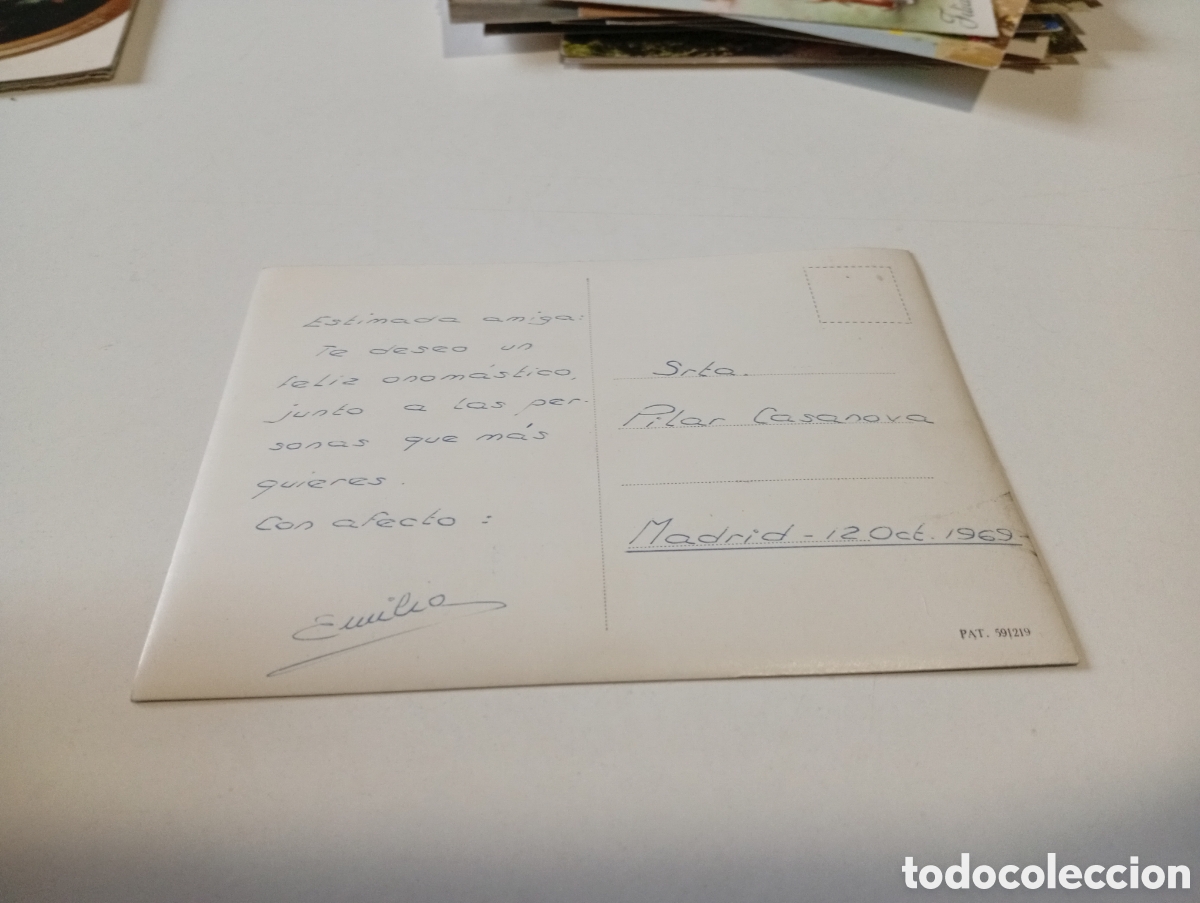 Estimada amiga:
Te deseo un
feliz onomástico,
junto a las per-
sonas que más
quieres.
Con afecto:
Emilio
Srta.
Pilar Casanova
Madrid - 12 Oct. 1969-
PAT. 591219
todocoleccion